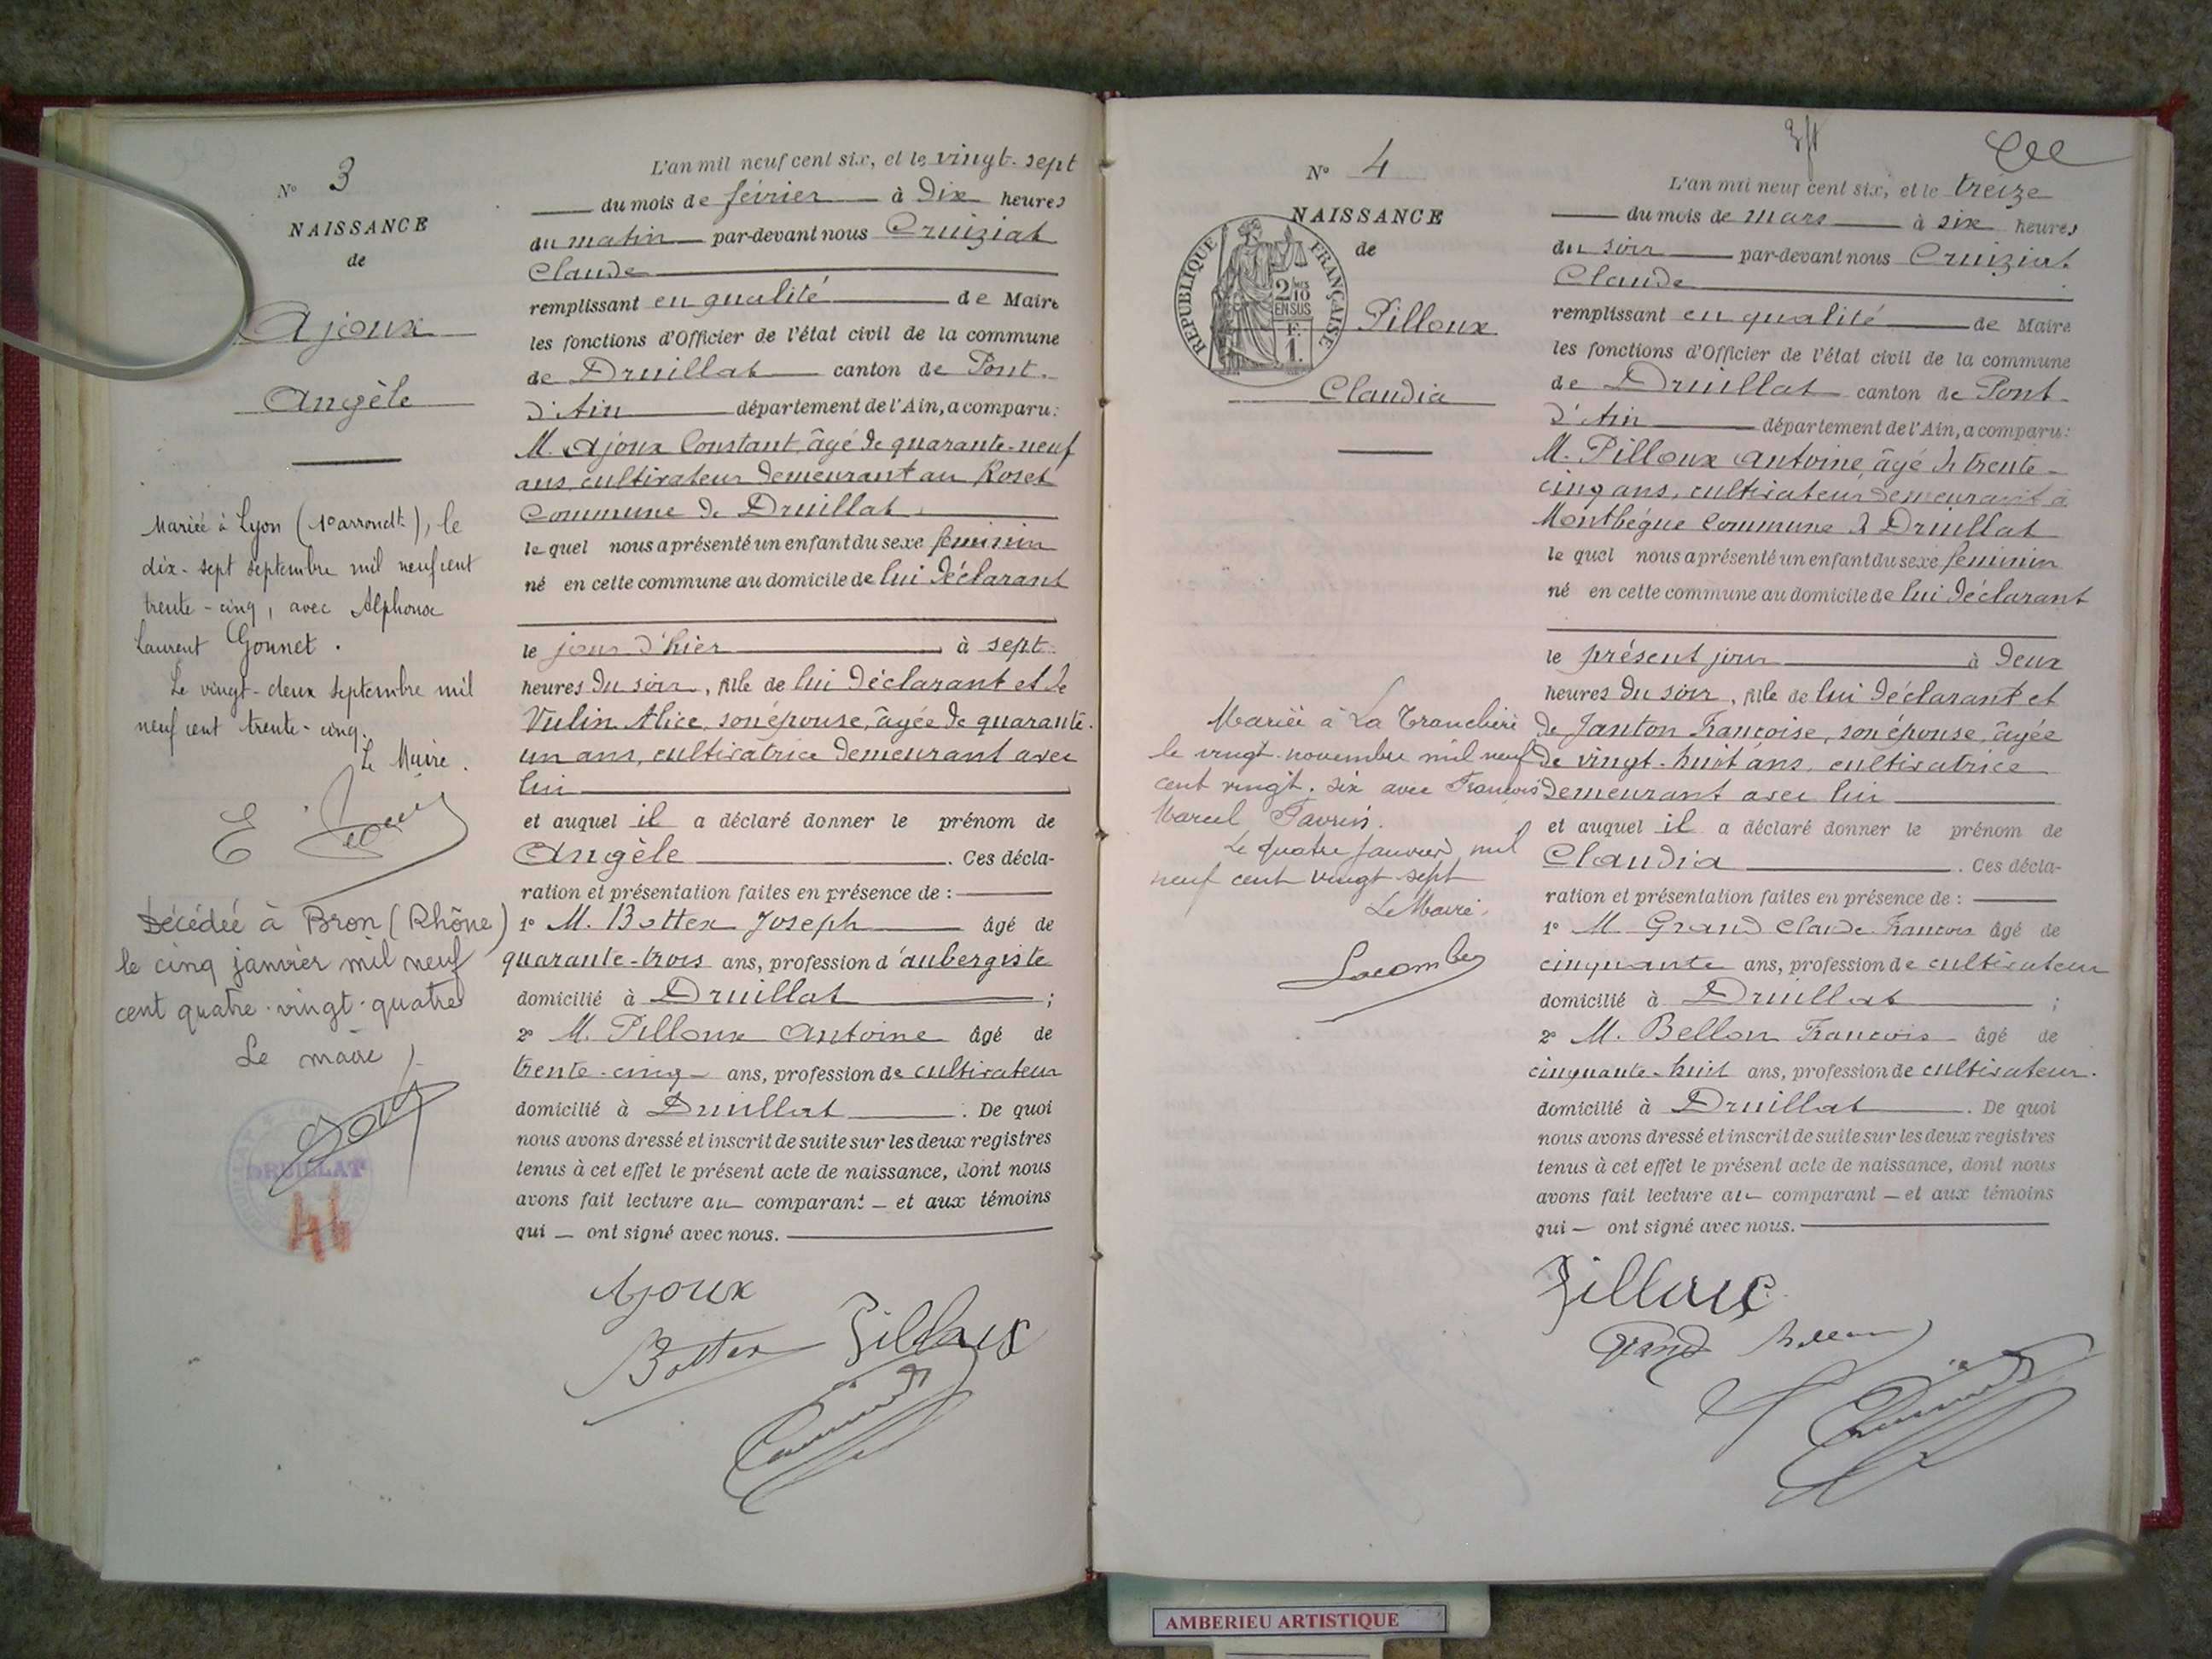 N° 3
NAISSANCE
de
Ajoux
Angèle
Mariée à Lyon (1er arrondt), le
dix-sept septembre mil neuf cent
trente-cinq, avec Alphonse
Laurent Gonnet.
Le vingt-deux septembre mil
neuf cent trente-cinq.
Le Maire.
Décédée à Bron (Rhône)
le cinq janvier mil neuf
cent quatre-vingt-quatre
Le maire
DRUILLAT
L'an mil neuf cent six, et le vingt-sept
du mois de février à dix heures
du matin par-devant nous Cruiziat
Claude
remplissant en qualité de Maire
les fonctions d'Officier de l'état civil de la commune
de Druillat canton de Pont-
d'Ain département de l'Ain, a comparu:
M. Ajoux Constant, âgé de quarante-neuf
ans, cultivateur demeurant au Roset
Commune de Druillat
le quel nous a présenté un enfant du sexe féminin
né en cette commune au domicile de lui déclarant
le jour d'hier à sept
heures du soir, fille de lui déclarant et de
Vulin Alice, son épouse, âgée de quarante-
un ans, cultivatrice demeurant avec
lui
et auquel il a déclaré donner le prénom de
Angèle. Ces décla-
ration et présentation faites en présence de :
1° M. Bottex Joseph âgé de
quarante-trois ans, profession d'aubergiste
domicilié à Druillat ;
2° M. Pilloux Antoine âgé de
trente-cinq ans, profession de cultivateur
domicilié à Druillat. De quoi
nous avons dressé et inscrit de suite sur les deux registres
tenus à cet effet le présent acte de naissance, dont nous
avons fait lecture au comparant et aux témoins
qui ont signé avec nous.
Ajoux
Bottex Pilloux
N° 4
NAISSANCE
de
RÉPUBLIQUE FRANÇAISE
2/10
EN SUS
1F.
Pilloux
Claudia
Mariée à La Tranclière
le vingt novembre mil neuf
cent vingt-six avec François
Marcel
Le quatre janvier mil
neuf cent vingt-sept
Le Maire,
Lacombe
L'an mil neuf cent six, et le treize
du mois de mars à six heures
du soir par-devant nous Cruiziat
Claude
remplissant en qualité de Maire
les fonctions d'Officier de l'état civil de la commune
de Druillat canton de Pont-
d'Ain département de l'Ain, a comparu:
M. Pilloux Antoine, âgé de trente-
cinq ans, cultivateur demeurant à
Montbégue Commune de Druillat
le quel nous a présenté un enfant du sexe féminin
né en cette commune au domicile de lui déclarant
le présent jour à deux
heures du soir, fille de lui déclarant et
de Janton Françoise, son épouse, âgée
de vingt-huit ans, cultivatrice
demeurant avec lui
et auquel il a déclaré donner le prénom de
Claudia. Ces décla-
ration et présentation faites en présence de :
1° M. Grand Claude François âgé de
cinquante ans, profession de cultivateur
domicilié à Druillat ;
2° M. Bellon François âgé de
cinquante-huit ans, profession de cultivateur.
domicilié à Druillat. De quoi
nous avons dressé et inscrit de suite sur les deux registres
tenus à cet effet le présent acte de naissance, dont nous
avons fait lecture au comparant et aux témoins
qui ont signé avec nous.
Pilloux
Grand
AMBERIEU ARTISTIQUE